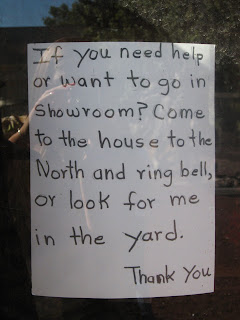 If you need help
or want to go in
showroom? Come
to the house to the
North and ring bell,
or look for me
in the yard.
Thank You